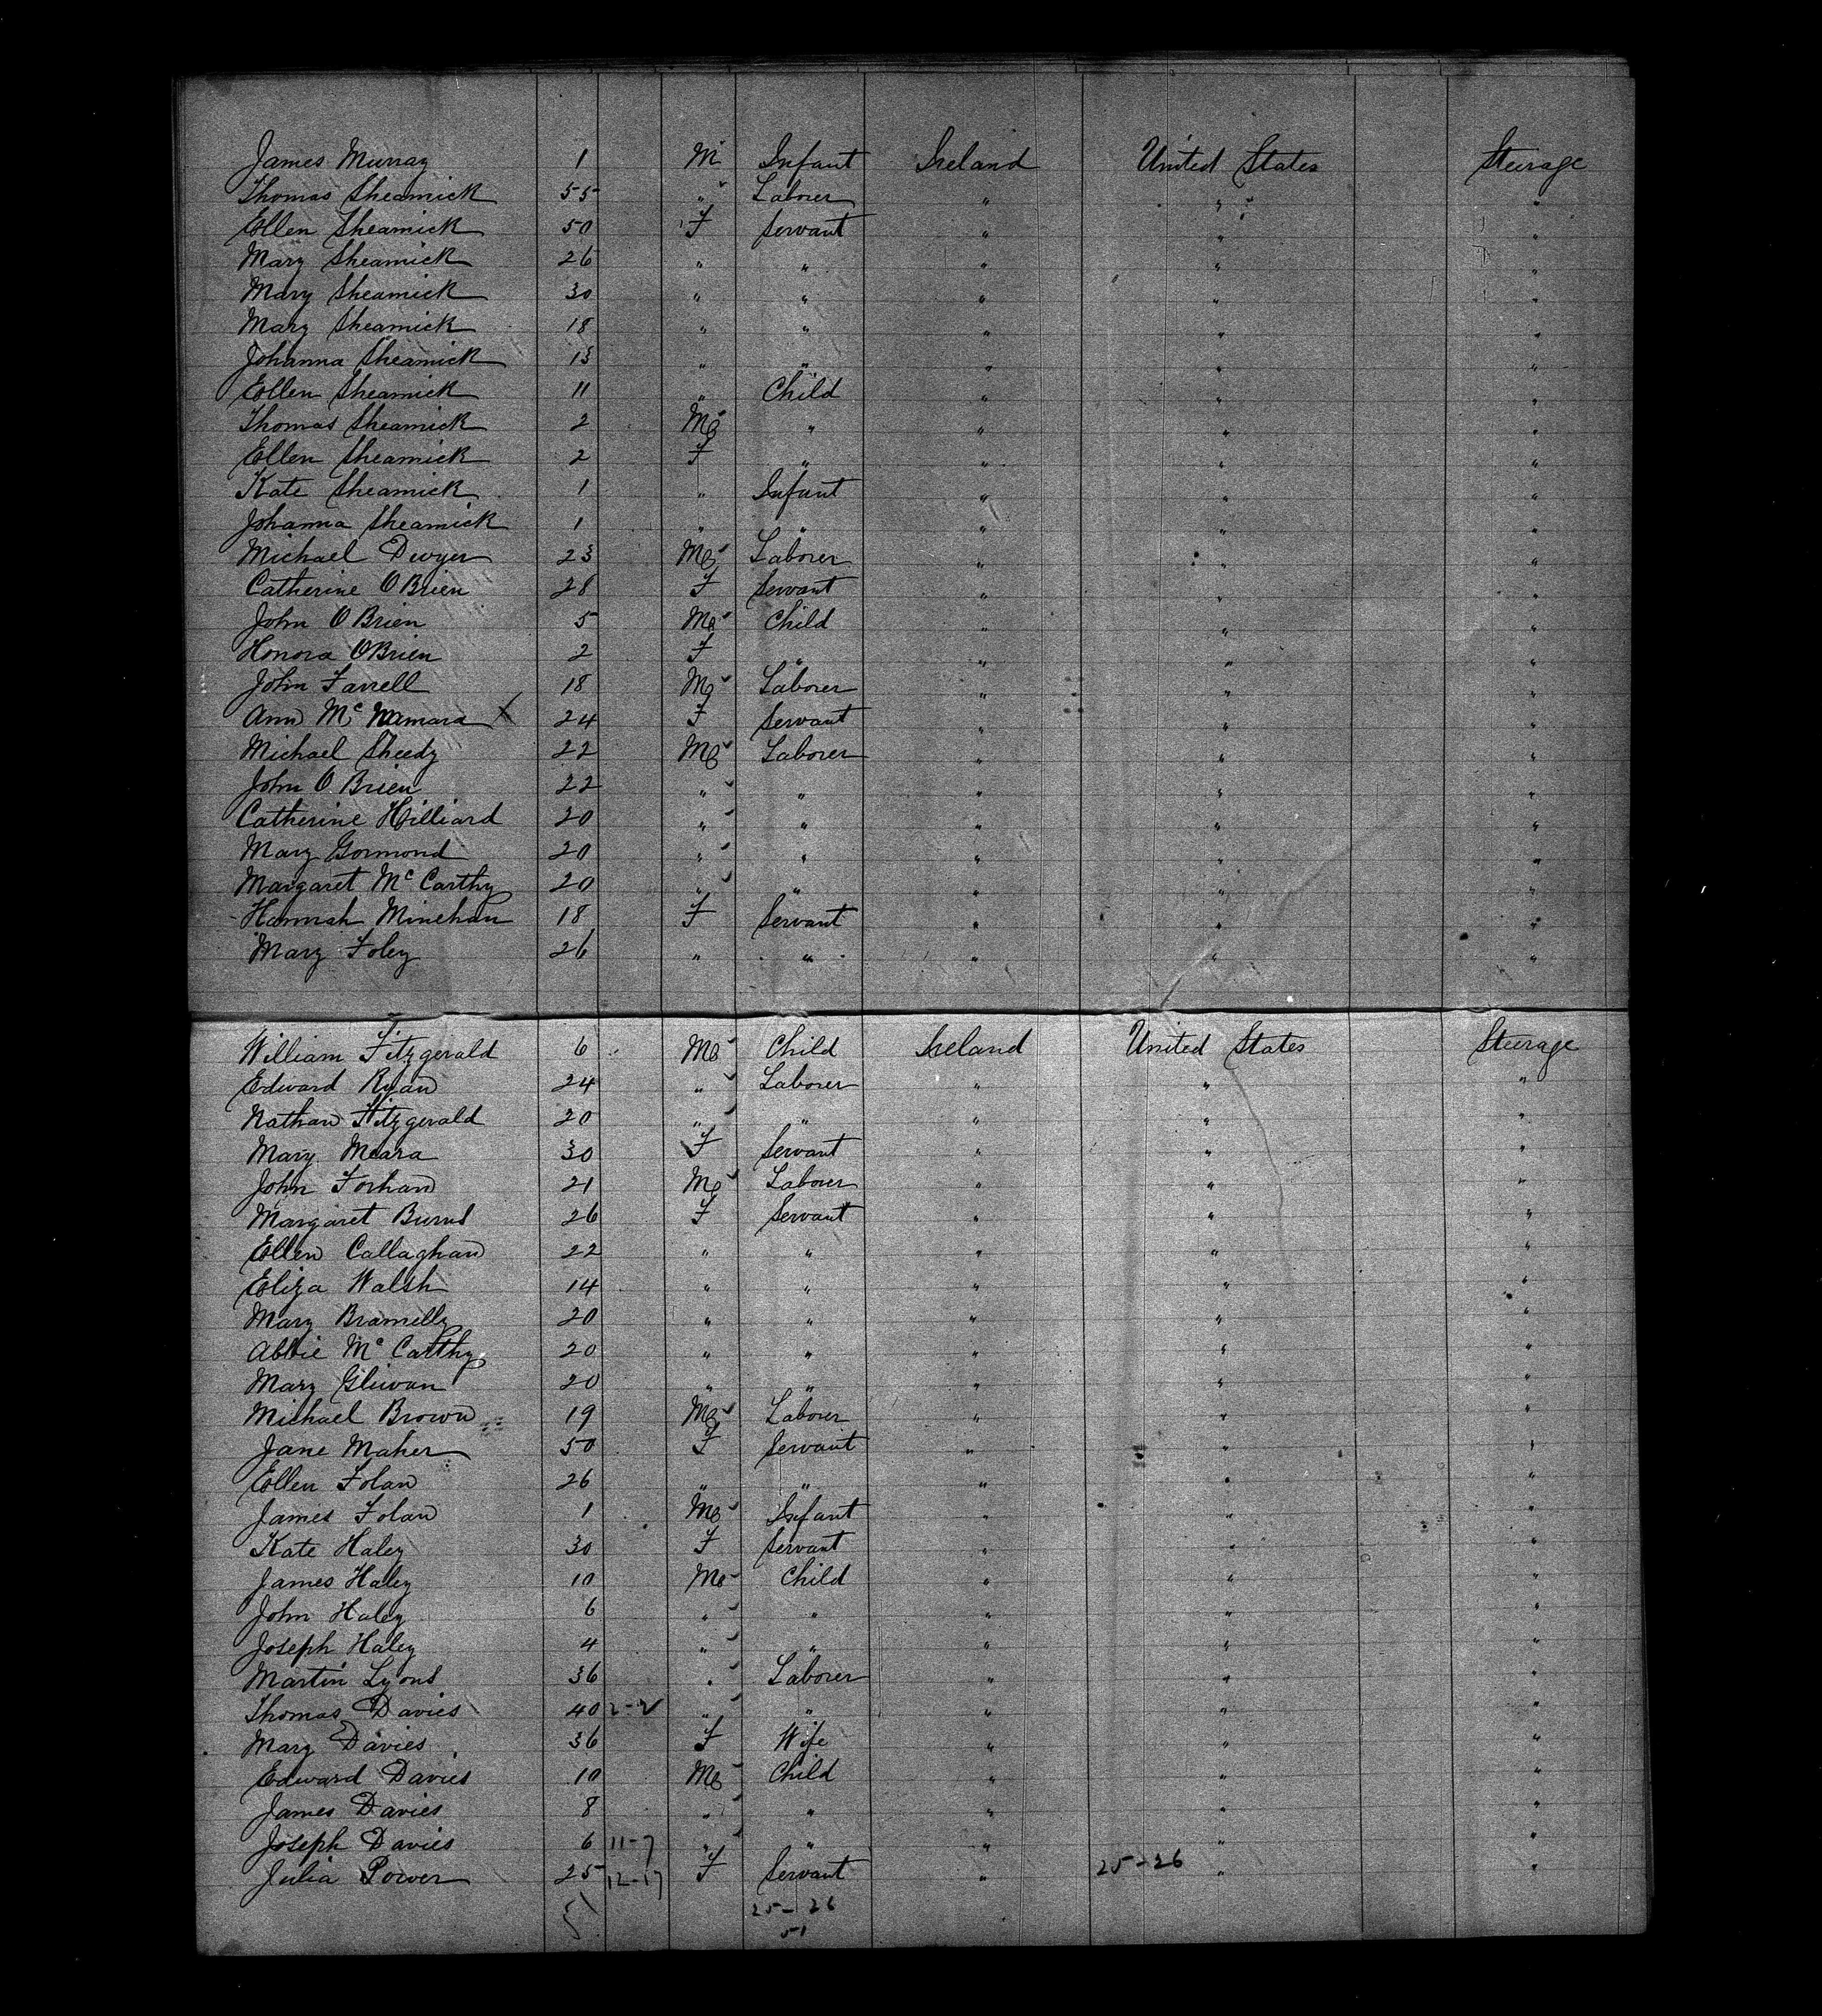 James Murray 1 M Infant Ireland United States Steerage
Thomas Sheamick 55 " Laborer " " "
Ellen Sheamick 50 F Servant " " "
Mary Sheamick 26 " " " " "
Mary Sheamick 30 " " " " "
Mary Sheamick 18 " " " " "
Johanna Sheamick 13 " " " " "
Ellen Sheamick 11 " Child " " "
Thomas Sheamick 2 M " " " "
Ellen Sheamick 2 F " " " "
Kate Sheamick 1 " Infant " " "
Johanna Sheamick 1 " " " " "
Michael Dwyer 23 M Laborer " " "
Catherine O Brien 28 F Servant " " "
John O Brien 5 M Child " " "
Honora O Brien 2 F " " " "
John Farrell 18 M Laborer " " "
Ann Mc Namara X 24 F Servant " " "
Michael Sheedy 22 M Laborer " " "
John O Brien 22 " " " " "
Catherine Hilliard 20 " " " " "
Mary Gormond 20 " " " " "
Margaret Mc Carthy 20 " " " " "
Hannah Minehan 18 F Servant " " "
Mary Foley 26 " " " " "
William Fitzgerald 6 M Child Ireland United States Steerage
Edward Ryan 24 " Laborer " " "
Nathan Fitzgerald 20 " " " " "
Mary Meara 30 F Servant " " "
John Forhan 21 M Laborer " " "
Margaret Burns 26 F Servant " " "
Ellen Callaghan 22 " " " " "
Eliza Walsh 14 " " " " "
Mary Bramelly 20 " " " " "
Abbie Mc Carthy 20 " " " " "
Mary 20 " " " " "
Michael Brown 19 M Laborer " " "
Jane Maher 50 F Servant " " "
Ellen Folan 26 " " " " "
James Folan 1 M Infant " " "
Kate Haley 30 F Servant " " "
James Haley 10 M Child " " "
John Haley 6 " " " " "
Joseph Haley 4 " " " " "
Martin Lyons 36 " Laborer " " "
Thomas Davies 40 2-2 " " " " "
Mary Davies 36 F Wife " " "
Edward Davies 10 M Child " " "
James Davies 8 " " " " "
Joseph Davies 6 11-7 " " " " "
Julia Power 25 12-17 F Servant " 25-26 " "
51 25-26
51